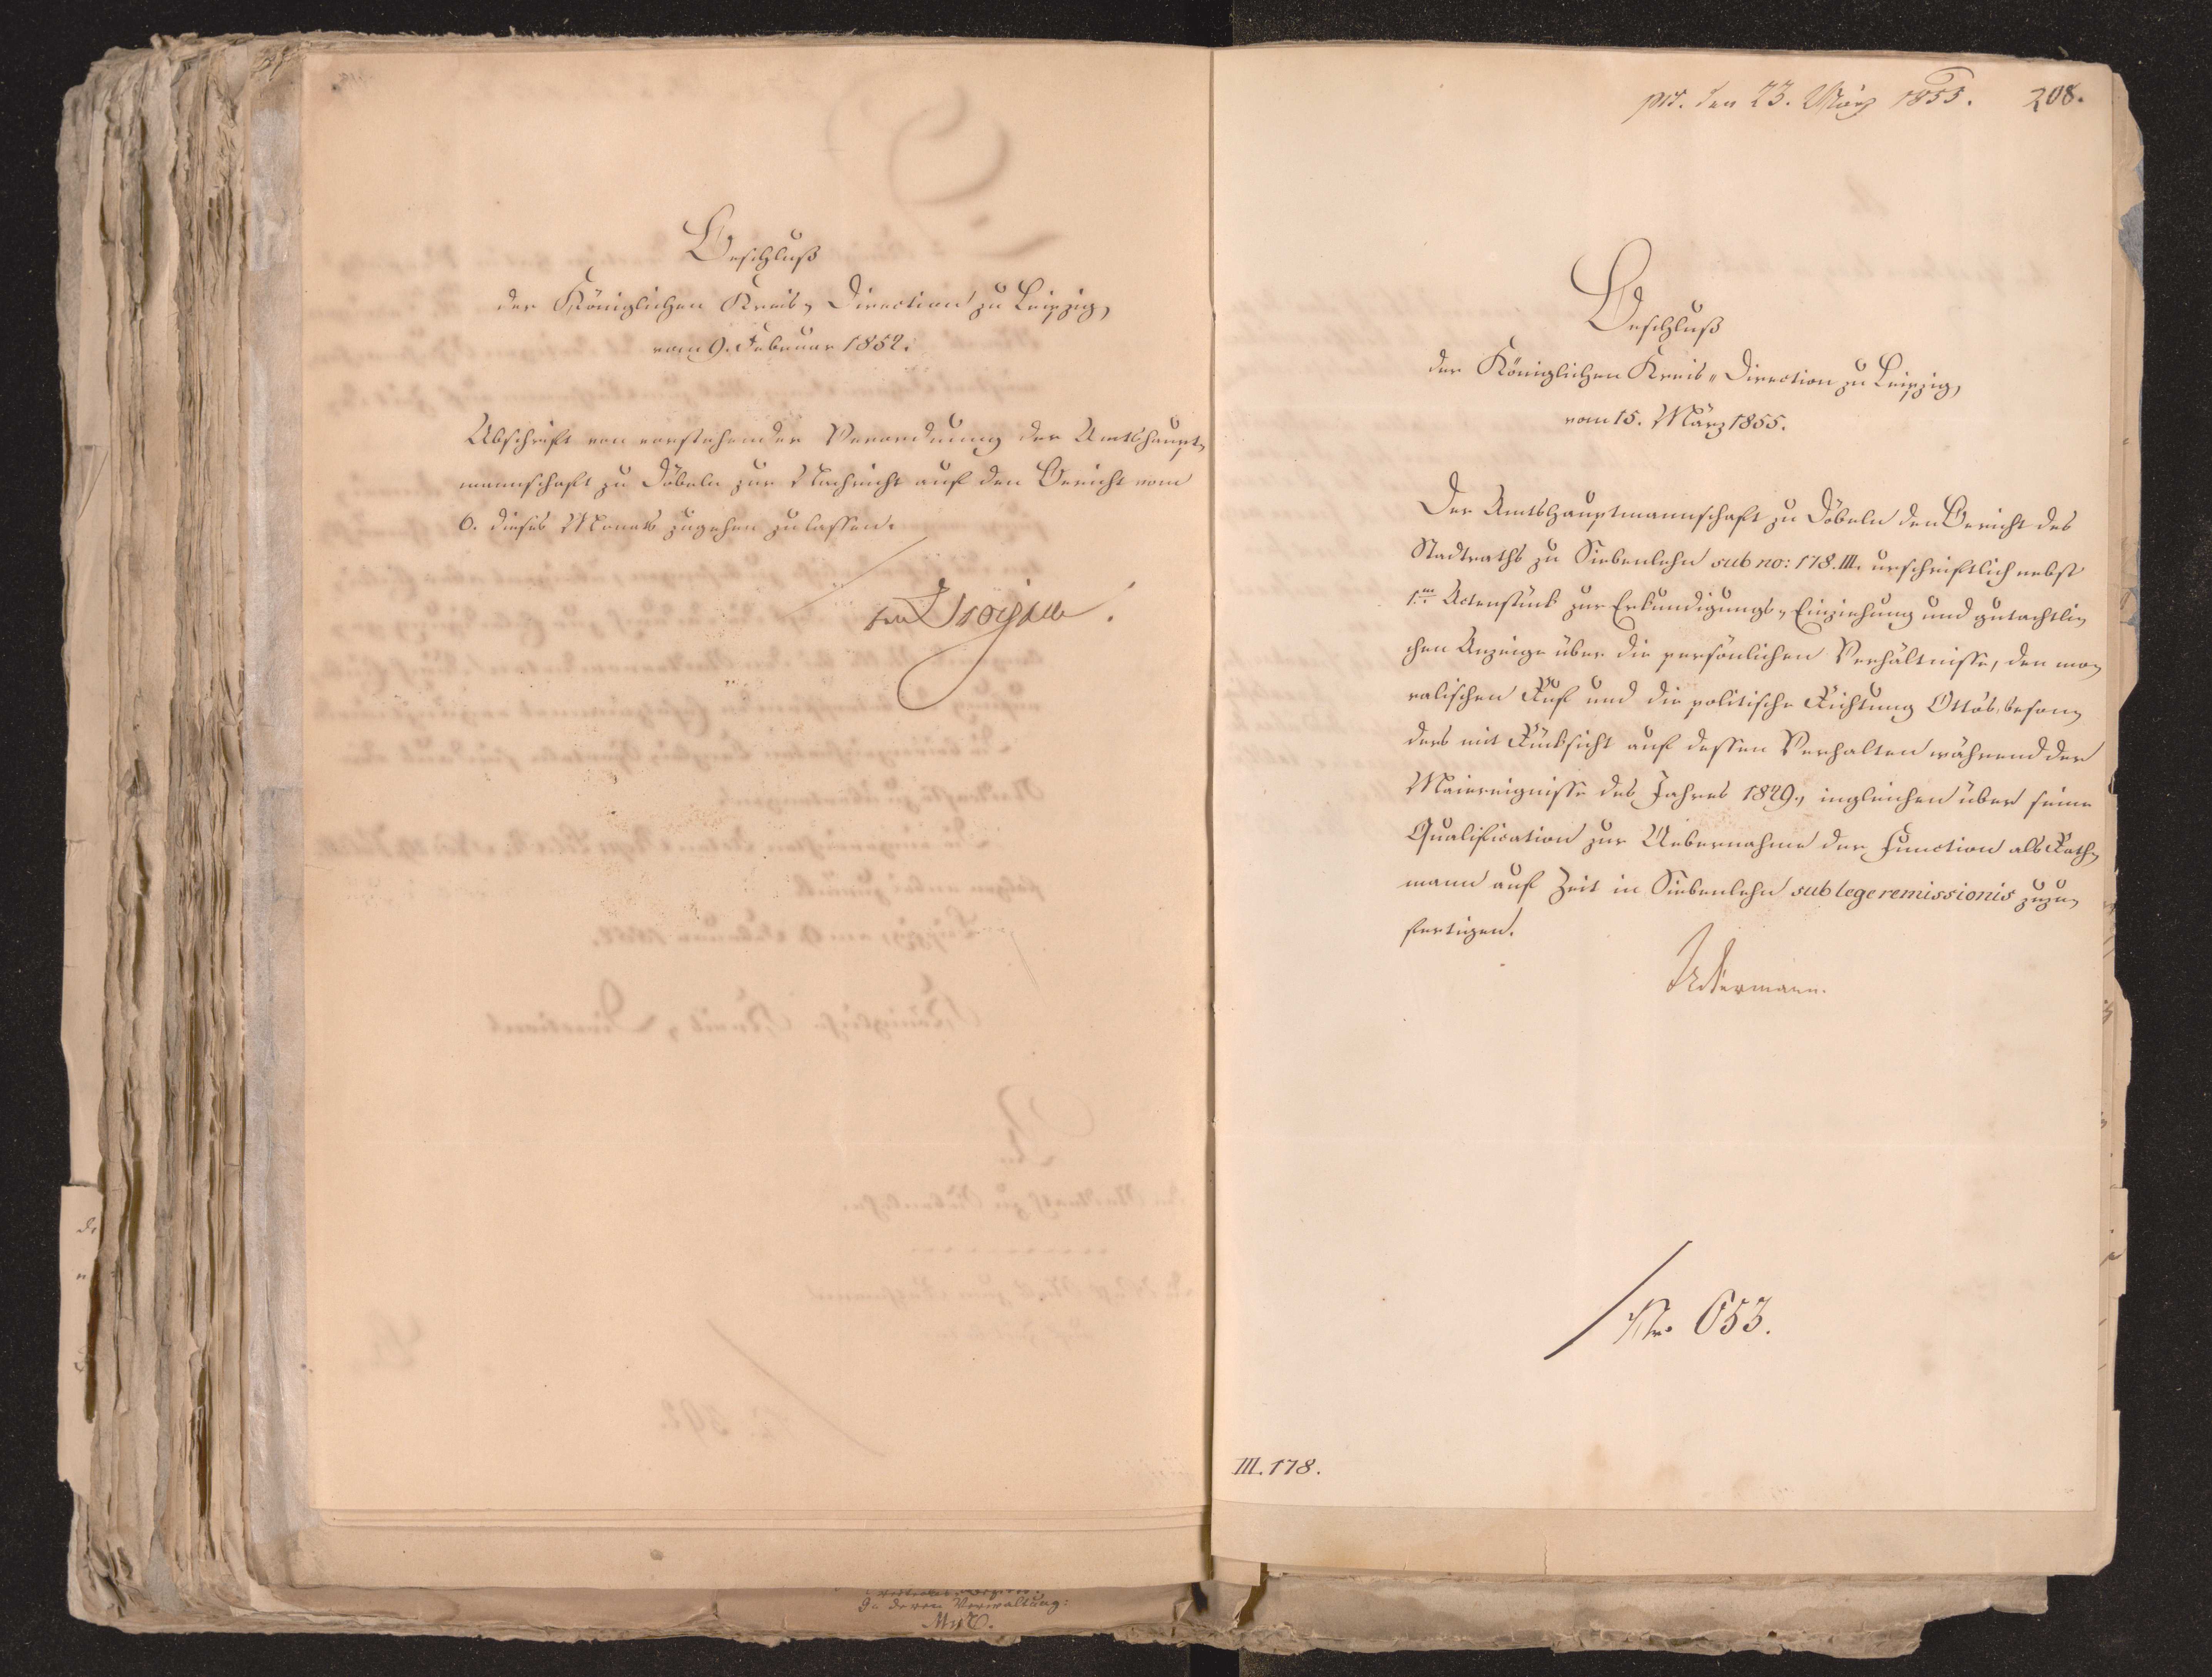 Beschluß
der Königlichen Kreis-Direction zu Leipzig,
vom 9. Februar 1852.
Abschrift von vorstehender Verordnung der Amtshaupt-
mannschaft zu Döbeln zur Nachricht auf den Bericht vom
6. dieses Monats zugehen zu lassen.
von
prs. den 23. März 1855. 208.
Beschluß
der Königlichen Kreis-Direction zu Leipzig,
vom 15. März 1855.
Der Amtshauptmannschaft zu Döbeln den Bericht des
Stadtraths zu Siebenlehn sub no: 178. III. urschriftlich nebst
1.m Actenstück zur Erkundigungs-Einziehung und gutachtli-
chen Anzeige über die persönlichen Verhältnisse, den mo-
ralischen Ruf und die politische Richtung Otto's, beson-
ders mit Rücksicht auf dessen Verhalten während der
Maiereignisse des Jahres 1849., ingleichen über seine
Qualification zur Uebernahme der Function als Rath-
mann auf Zeit in Siebenlehn sub lege remissionis zuzu-
fertigen.
Ackermann.
Nr. 653.
III. 178.
In deren Verwaltung: